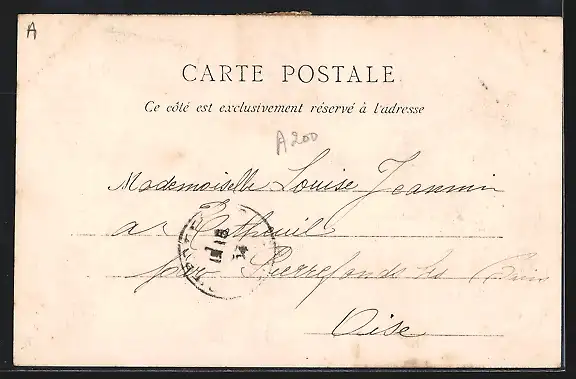 A
CARTE POSTALE
Ce côté est exclusivement réservé à l'adresse
A200
Mademoiselle Louise Jeannin
a
par Pierrefonds les Bains
Oise